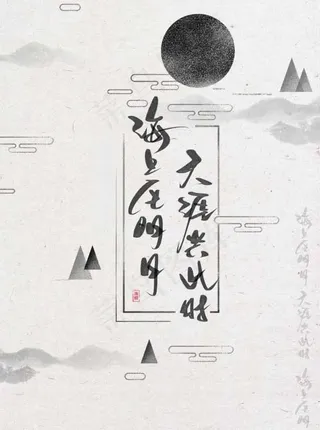 海上生明月
天涯共此时
海上生明月 天涯共此时 海上生明月